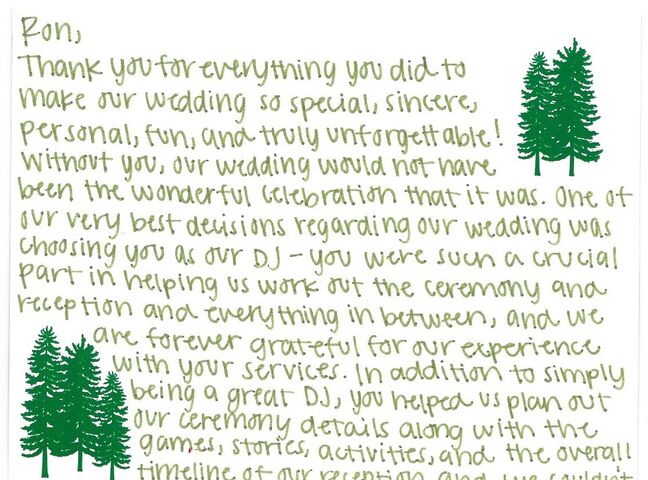 Ron,
Thank you for everything you did to
make our wedding so special, sincere,
personal, fun, and truly unforgettable!
Without you, our wedding would not have
been the wonderful celebration that it was. One of
our very best decisions regarding our wedding was
choosing you as our DJ - you were such a crucial
part in helping us work out the ceremony and
reception and everything in between, and we
are forever grateful for our experience
with your services. In addition to simply
being a great DJ, you helped us plan out
our ceremony details along with the
games, stories, activities, and the overall
timeline of our reception and we couldn't